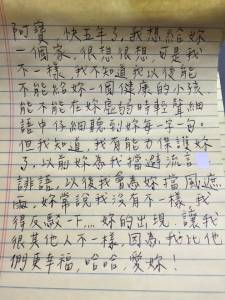 阿寶，快五年了，我想給妳
一個家，很想很想，可是我
不一樣，我不知道我以後能
不能給妳一個健康的小孩
能不能在妳虛弱時輕聲細
語中仔細聽到妳每一字句。
但我知道，我有能力保護妳
了，以前妳為我擋避流言
誹語，以後我會為妳擋風遮
雨，妳常說我沒有不一樣，我
得反駁一下…，妳的出現，讓我
很其他人不一樣，因為，我比他
們更幸福，哈哈，愛妳！